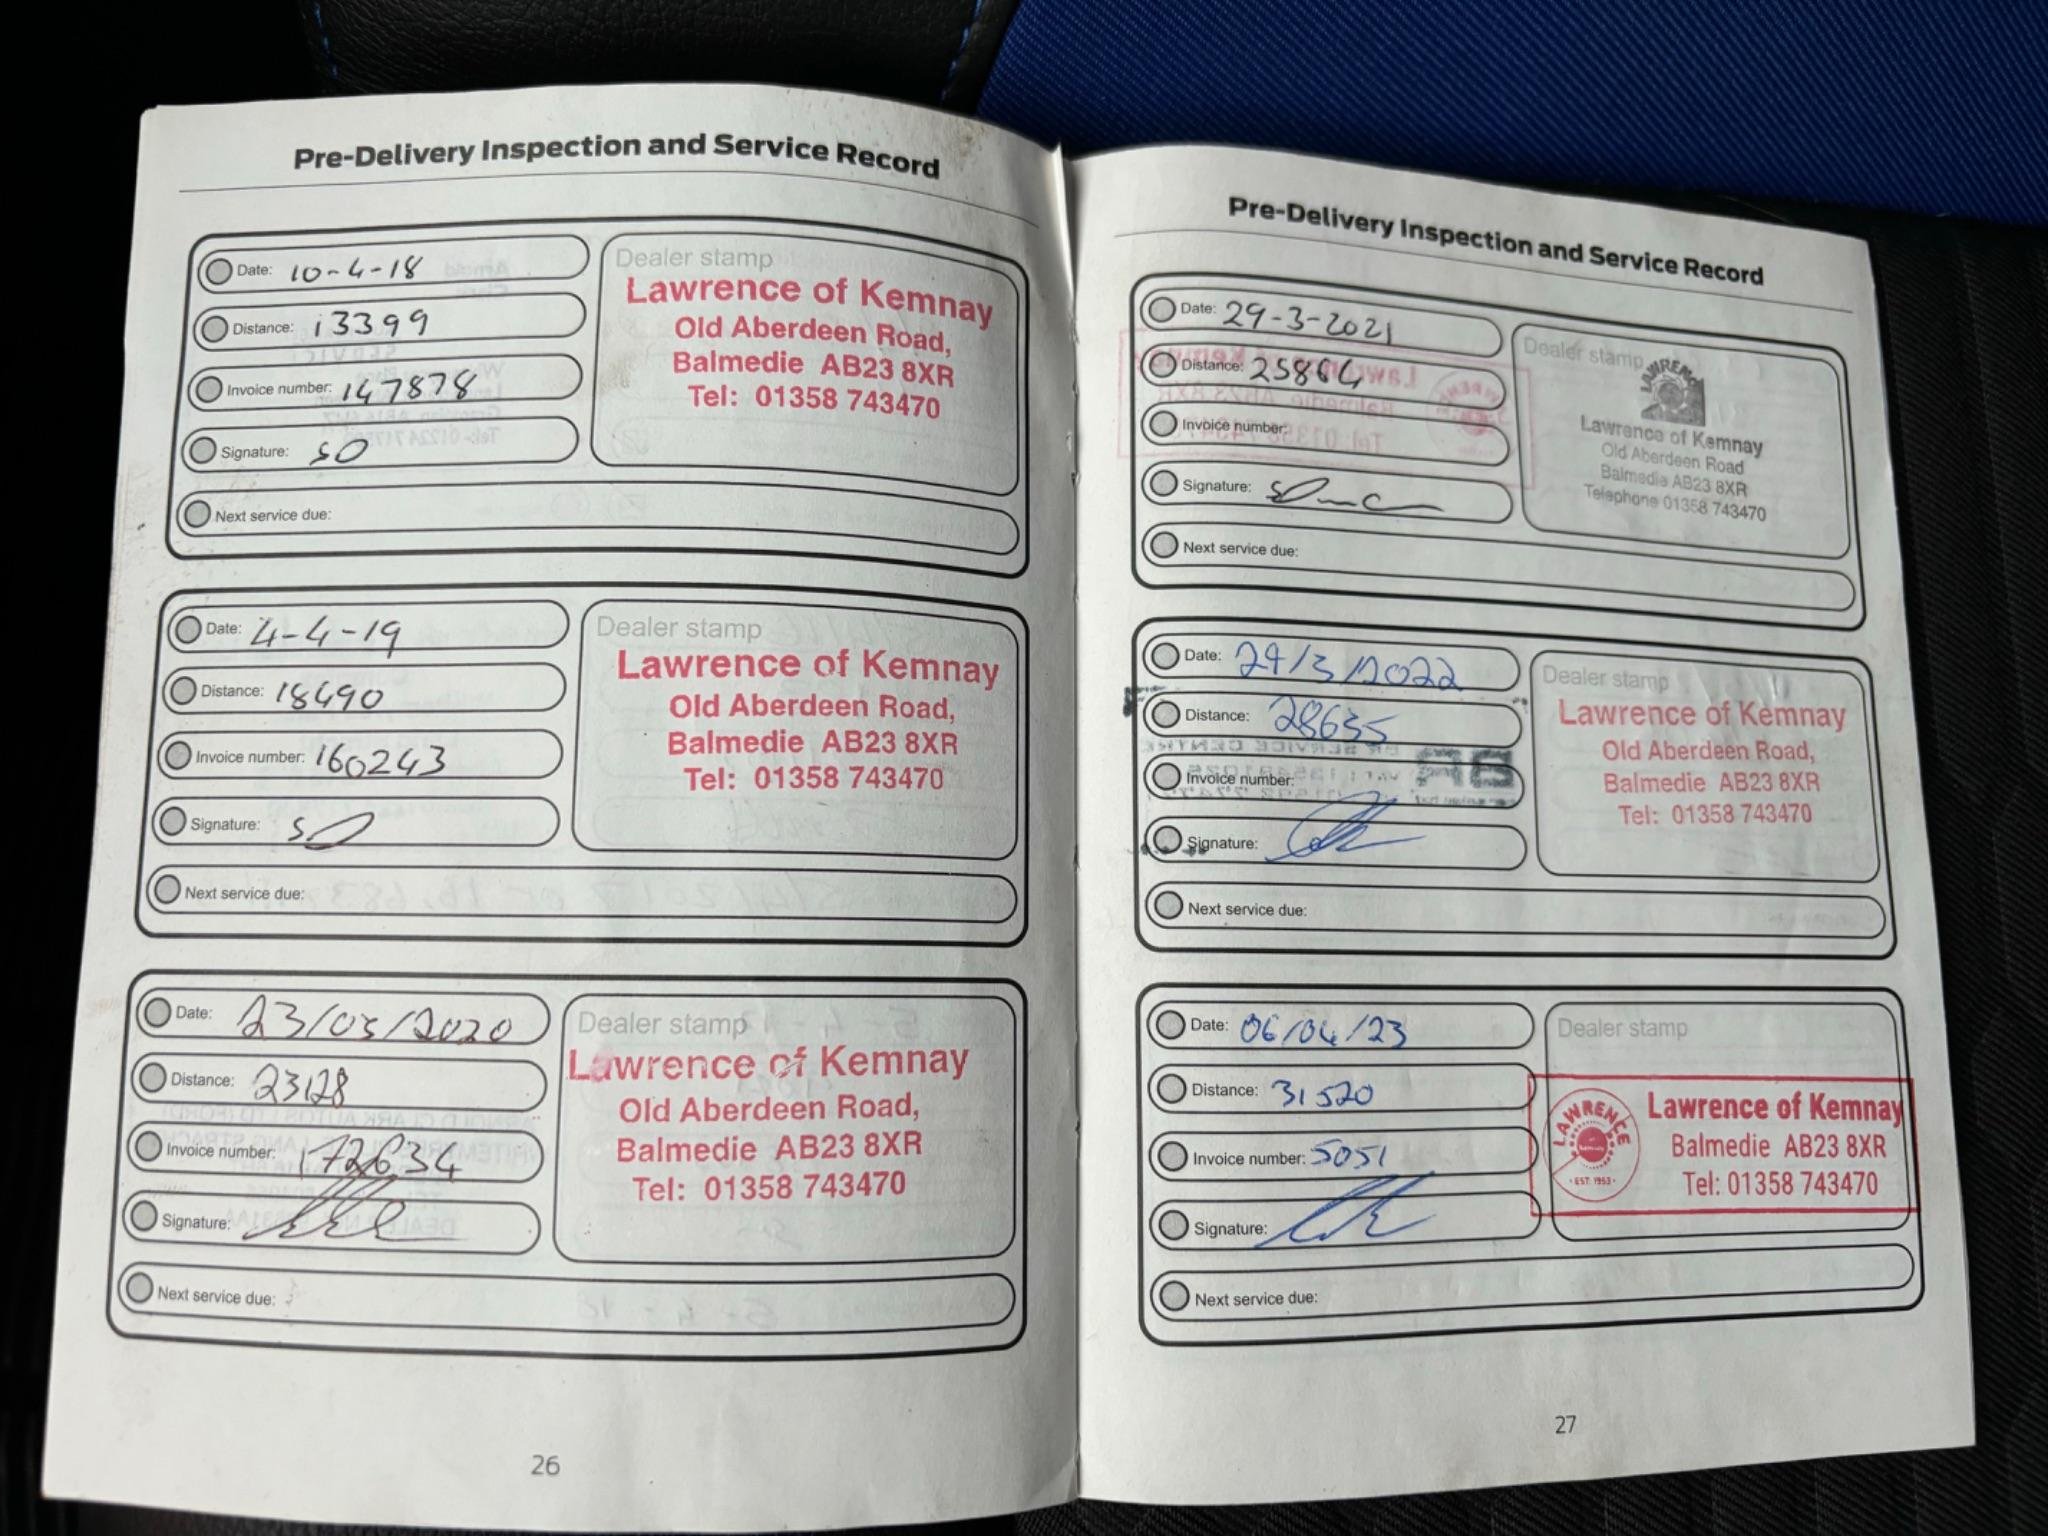 Pre-Delivery Inspection and Service Record
Date: 10-4-18
Distance: 13399
Invoice number: 147878
Signature: SO
Next service due:
Dealer stamp
Lawrence of Kemnay
Old Aberdeen Road,
Balmedie AB23 8XR
Tel: 01358 743470
Date: 4-4-19
Distance: 18490
Invoice number: 160243
Signature: SO
Next service due:
Dealer stamp
Lawrence of Kemnay
Old Aberdeen Road,
Balmedie AB23 8XR
Tel: 01358 743470
Date: 23/03/2020
Distance: 23128
Invoice number: 172634
Signature:
Next service due:
Dealer stamp
Lawrence of Kemnay
Old Aberdeen Road,
Balmedie AB23 8XR
Tel: 01358 743470
26
Pre-Delivery Inspection and Service Record
Date: 29-3-2021
Distance: 25864
Invoice number:
Signature:
Next service due:
Dealer stamp
LAWRENCE
Lawrence of Kemnay
Old Aberdeen Road
Balmedie AB23 8XR
Telephone 01358 743470
Date: 29/3/2022
Distance: 28635
Invoice number:
Signature:
Next service due:
Dealer stamp
Lawrence of Kemnay
Old Aberdeen Road,
Balmedie AB23 8XR
Tel: 01358 743470
Date: 06/04/23
Distance: 31520
Invoice number: 5051
Signature:
Next service due:
Dealer stamp
LAWRENCE
EST. 1953
Lawrence of Kemnay
Balmedie AB23 8XR
Tel: 01358 743470
27